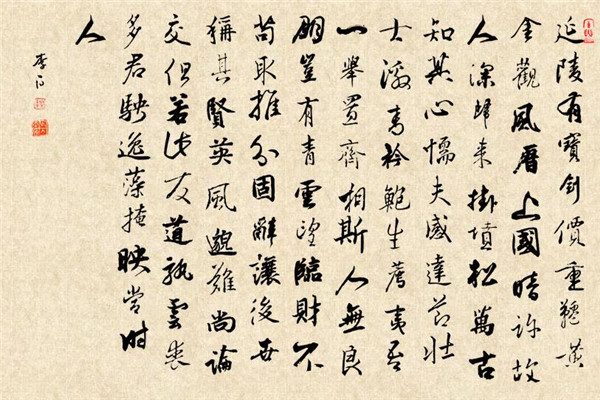 延陵有寶劍價重韆黃
金觀風曆上國暗許故
人深歸來掛墳松萬古
知其心懦夫感達節壯
士激青衿鮑生薦夷吾
一舉置齊相斯人無良
朋豈有青雲望臨財不
苟取推分固辭讓後世
稱其賢英風邈難尚論
交但若此友道孰雲喪
多君騁逸藻掩映當時
人
李